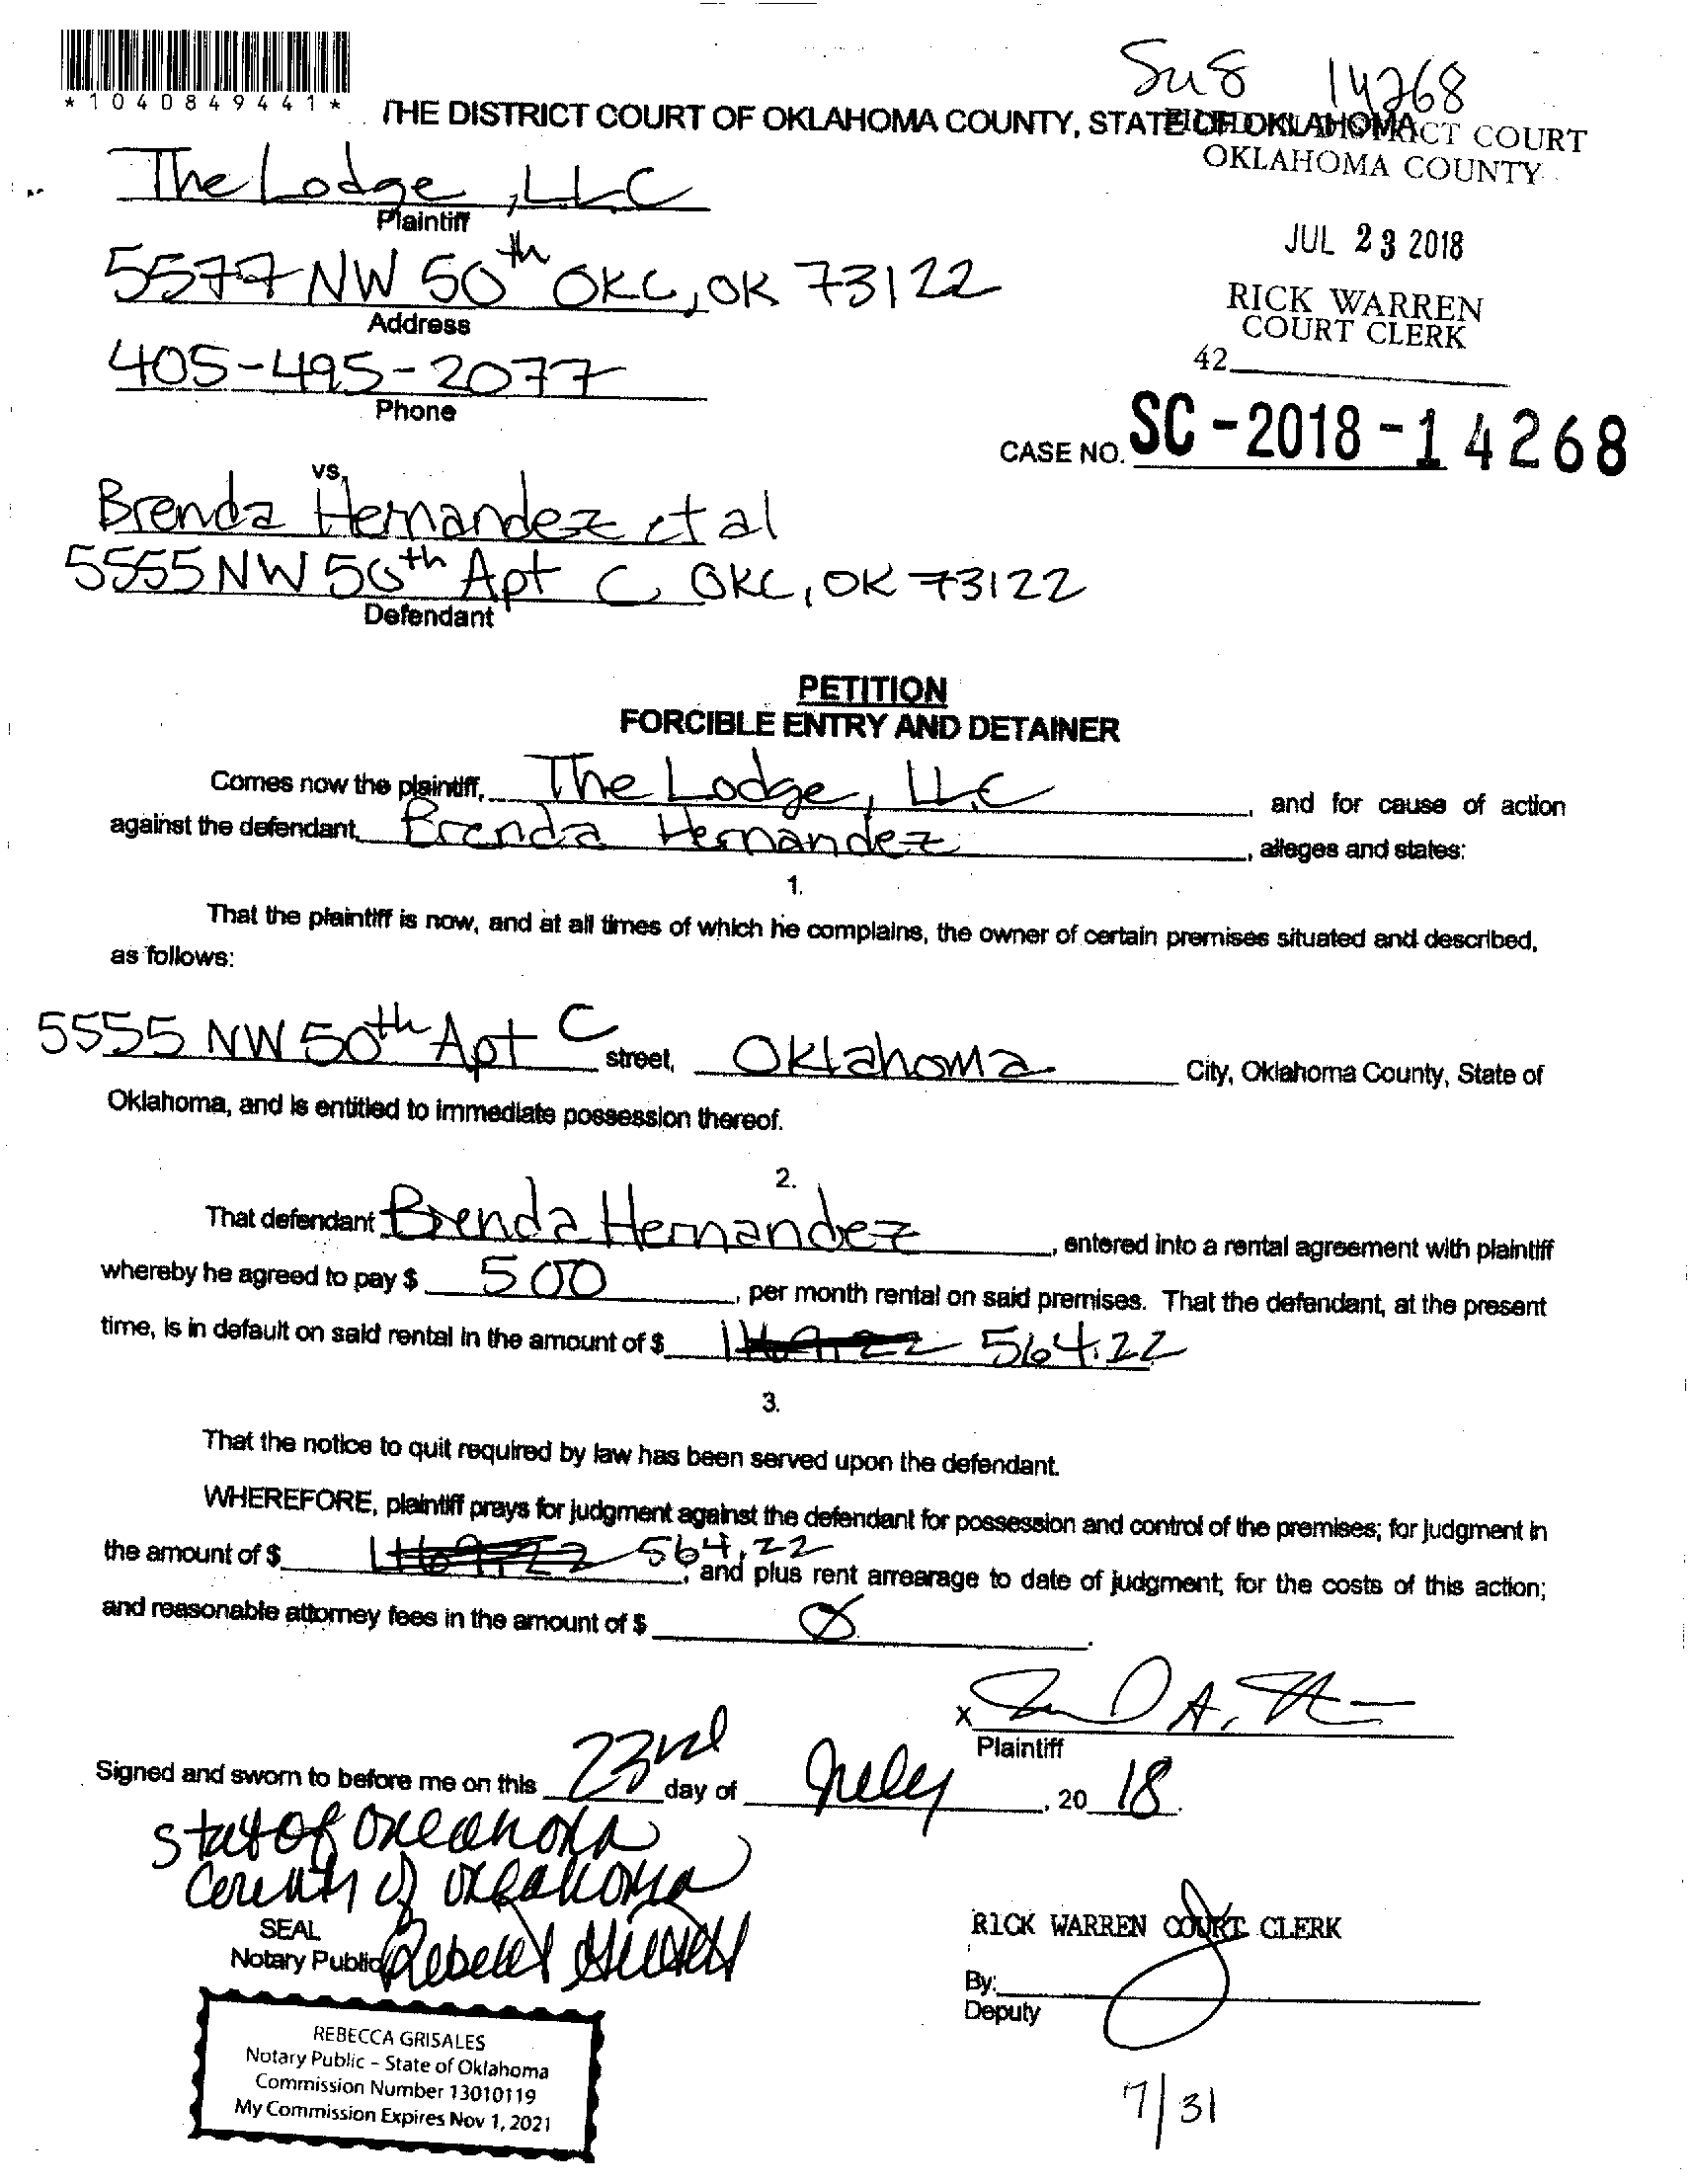 Su8 14268
*1040849441*
THE DISTRICT COURT OF OKLAHOMA COUNTY, STATE OF OKLAHOMA
FILED IN DISTRICT COURT
OKLAHOMA COUNTY
The Lodge, LLC
Plaintiff
JUL 23 2018
5577 NW 50th OKC, OK 73122
Address
RICK WARREN
COURT CLERK
405-495-2077
Phone
42
CASE NO. SC-2018-14268
vs.
Brenda Hernandez et al
5555 NW 50th Apt C OKC, OK 73122
Defendant
PETITION
FORCIBLE ENTRY AND DETAINER
Comes now the plaintiff, The Lodge, LLC, and for cause of action
against the defendant, Brenda Hernandez, alleges and states:
1.
That the plaintiff is now, and at all times of which he complains, the owner of certain premises situated and described,
as follows:
5555 NW 50th Apt C street, Oklahoma City, Oklahoma County, State of
Oklahoma, and is entitled to immediate possession thereof.
2.
That defendant Brenda Hernandez, entered into a rental agreement with plaintiff
whereby he agreed to pay $ 500, per month rental on said premises. That the defendant, at the present
time, is in default on said rental in the amount of $ 564.22
3.
That the notice to quit required by law has been served upon the defendant.
WHEREFORE, plaintiff prays for judgment against the defendant for possession and control of the premises; for judgment in
the amount of $ 1469.22 564.22, and plus rent arrearage to date of judgment; for the costs of this action;
and reasonable attorney fees in the amount of $ Ø.
x
Plaintiff
Signed and sworn to before me on this 23rd day of July, 20 18.
State of Oklahoma
County of Oklahoma
SEAL
Notary Public Rebecca Grisales
RICK WARREN COURT CLERK
By:
Deputy
REBECCA GRISALES
Notary Public - State of Oklahoma
Commission Number 13010119
My Commission Expires Nov 1, 2021
7/31